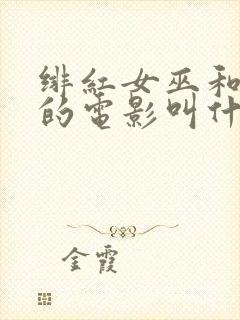 绯红女巫和
的電影叫什
金霞